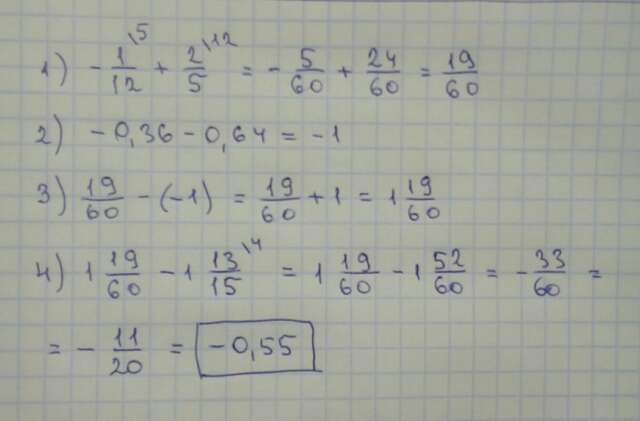 1) - 1/12 \5 + 2/5 \12 = - 5/60 + 24/60 = 19/60
2) - 0,36 - 0,64 = - 1
3) 19/60 - (-1) = 19/60 + 1 = 1 19/60
4) 1 19/60 - 1 13/15 \4 = 1 19/60 - 1 52/60 = - 33/60 =
= - 11/20 = -0,55